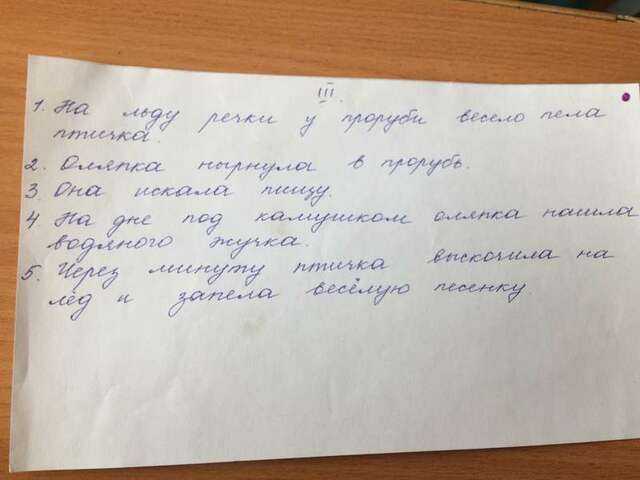 III.
1. На льду речки у проруби весело пела
птичка.
2. Оляпка нырнула в прорубь.
3. Она искала пищу.
4. На дне под камушком оляпка нашла
водяного жучка.
5. Через минуту птичка выскочила на
лед и запела весёлую песенку.